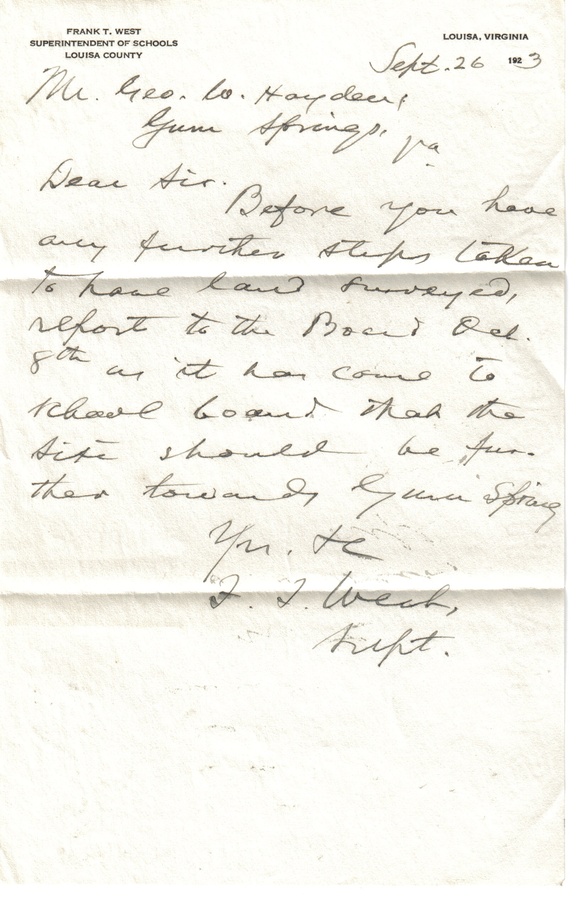 FRANK T. WEST
SUPERINTENDENT OF SCHOOLS
LOUISA COUNTY
LOUISA, VIRGINIA
Sept. 26 1923
Mr. Geo. W. Hayden,
Gum Springs, Va
Dear Sir.
Before you have
any further steps taken
to have land surveyed,
report to the Board Oct.
8th as it has come to
school board that the
site should be fur-
ther towards Gum Spring
Yrs. &c
F. T. West,
Supt.